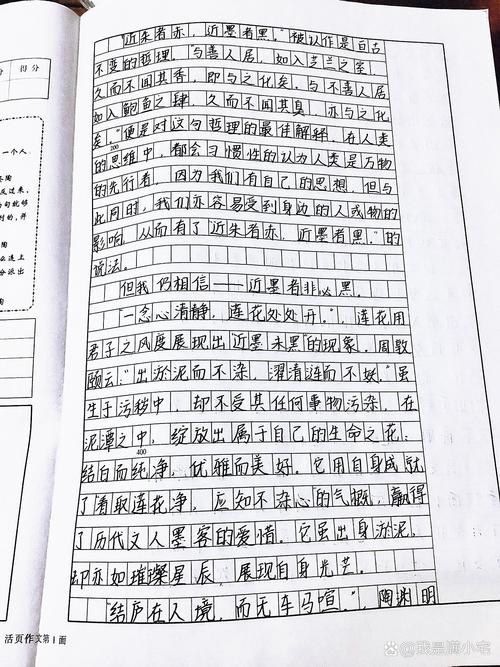 "近朱者赤，近墨者黑。"被认作是自古
不变的哲理。"与善人居，如入芝兰之室，
久而不闻其香，即与之化矣。与不善人居
如入鲍鱼之肆，久而不闻其臭，亦与之化
矣。"便是对这句哲理的最佳解释。在人类
200
的思维中，都会习惯性的认为人类是万物
的先行者，因为我们有自己的思想，但与
此同时，我们亦容易受到身边的人或物的
影响，从而有了"近朱者赤，近墨者黑。"的
说法。
但我仍相信——近墨者非必黑。
"一念心清静，莲花处处开。"，莲花用
君子之风度展现出"近墨未黑"的现象。周敦
颐云："出淤泥而不染，濯清涟而不妖。"虽
生于污秽中，却不受其任何事物污染，在
泥潭之中，绽放出属于自己的生命之花：
400
洁白而纯净，优雅而美好。它用自身成就
了看取莲花净，应知不染心的气概，赢得
了历代文人墨客的爱惜。它虽出身淤泥，
却亦如璀璨星辰，展现自身光芒。
"结庐在人境，而无车马喧。"，陶渊明
活页作文第1面
得分
一个人
反过来，
句就能够
列的，并
陶
众连上
分派出
陶
@我是满小宅